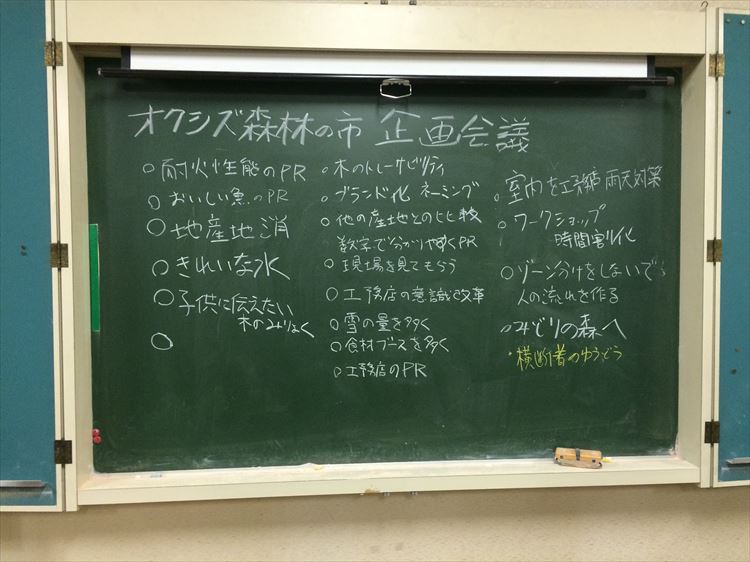 オクシズ森林の市 企画会議
○耐火性能のPR
○おいしい魚のPR
○地産地消
○きれいな水
○子供に伝えたい
木のみりょく
○
○木のトレーサビリティ
○ブランド化 ネーミング
○他の産地との比較
数字で分かりやすくPR
○現場を見てもらう
○工務店の意識改革
○雪の量を多く
○食材ブースを多く
○工務店のPR
○室内を 雨天対策
○ワークショップ
時間割り化
○ゾーン分けをしないで
人の流れを作る
○みどりの森へ
・横断者のゆうどう